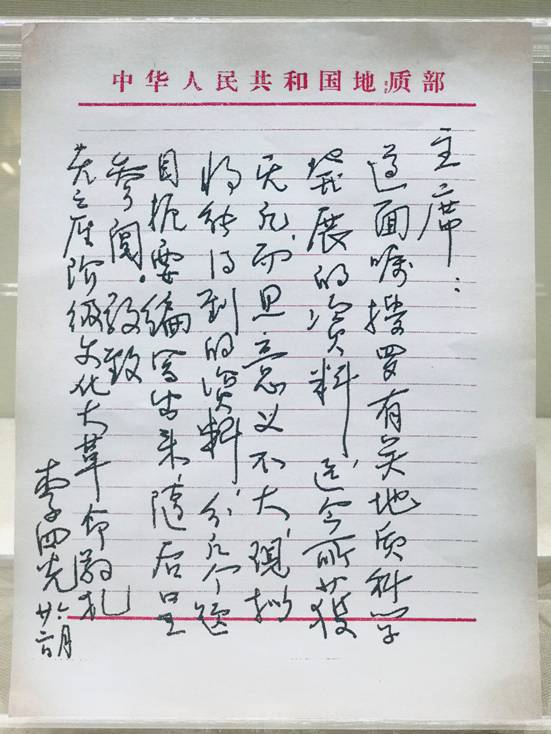 中华人民共和国地质部
主席：
遵面嘱搜罗有关地质科学
发展的资料，迄今所获
无几，而且意义不大，现拟
将能得到的资料，分几个题
目扼要编写出来，随后呈
参阅。敬致
无产阶级文化大革命敬礼
李四光
六月